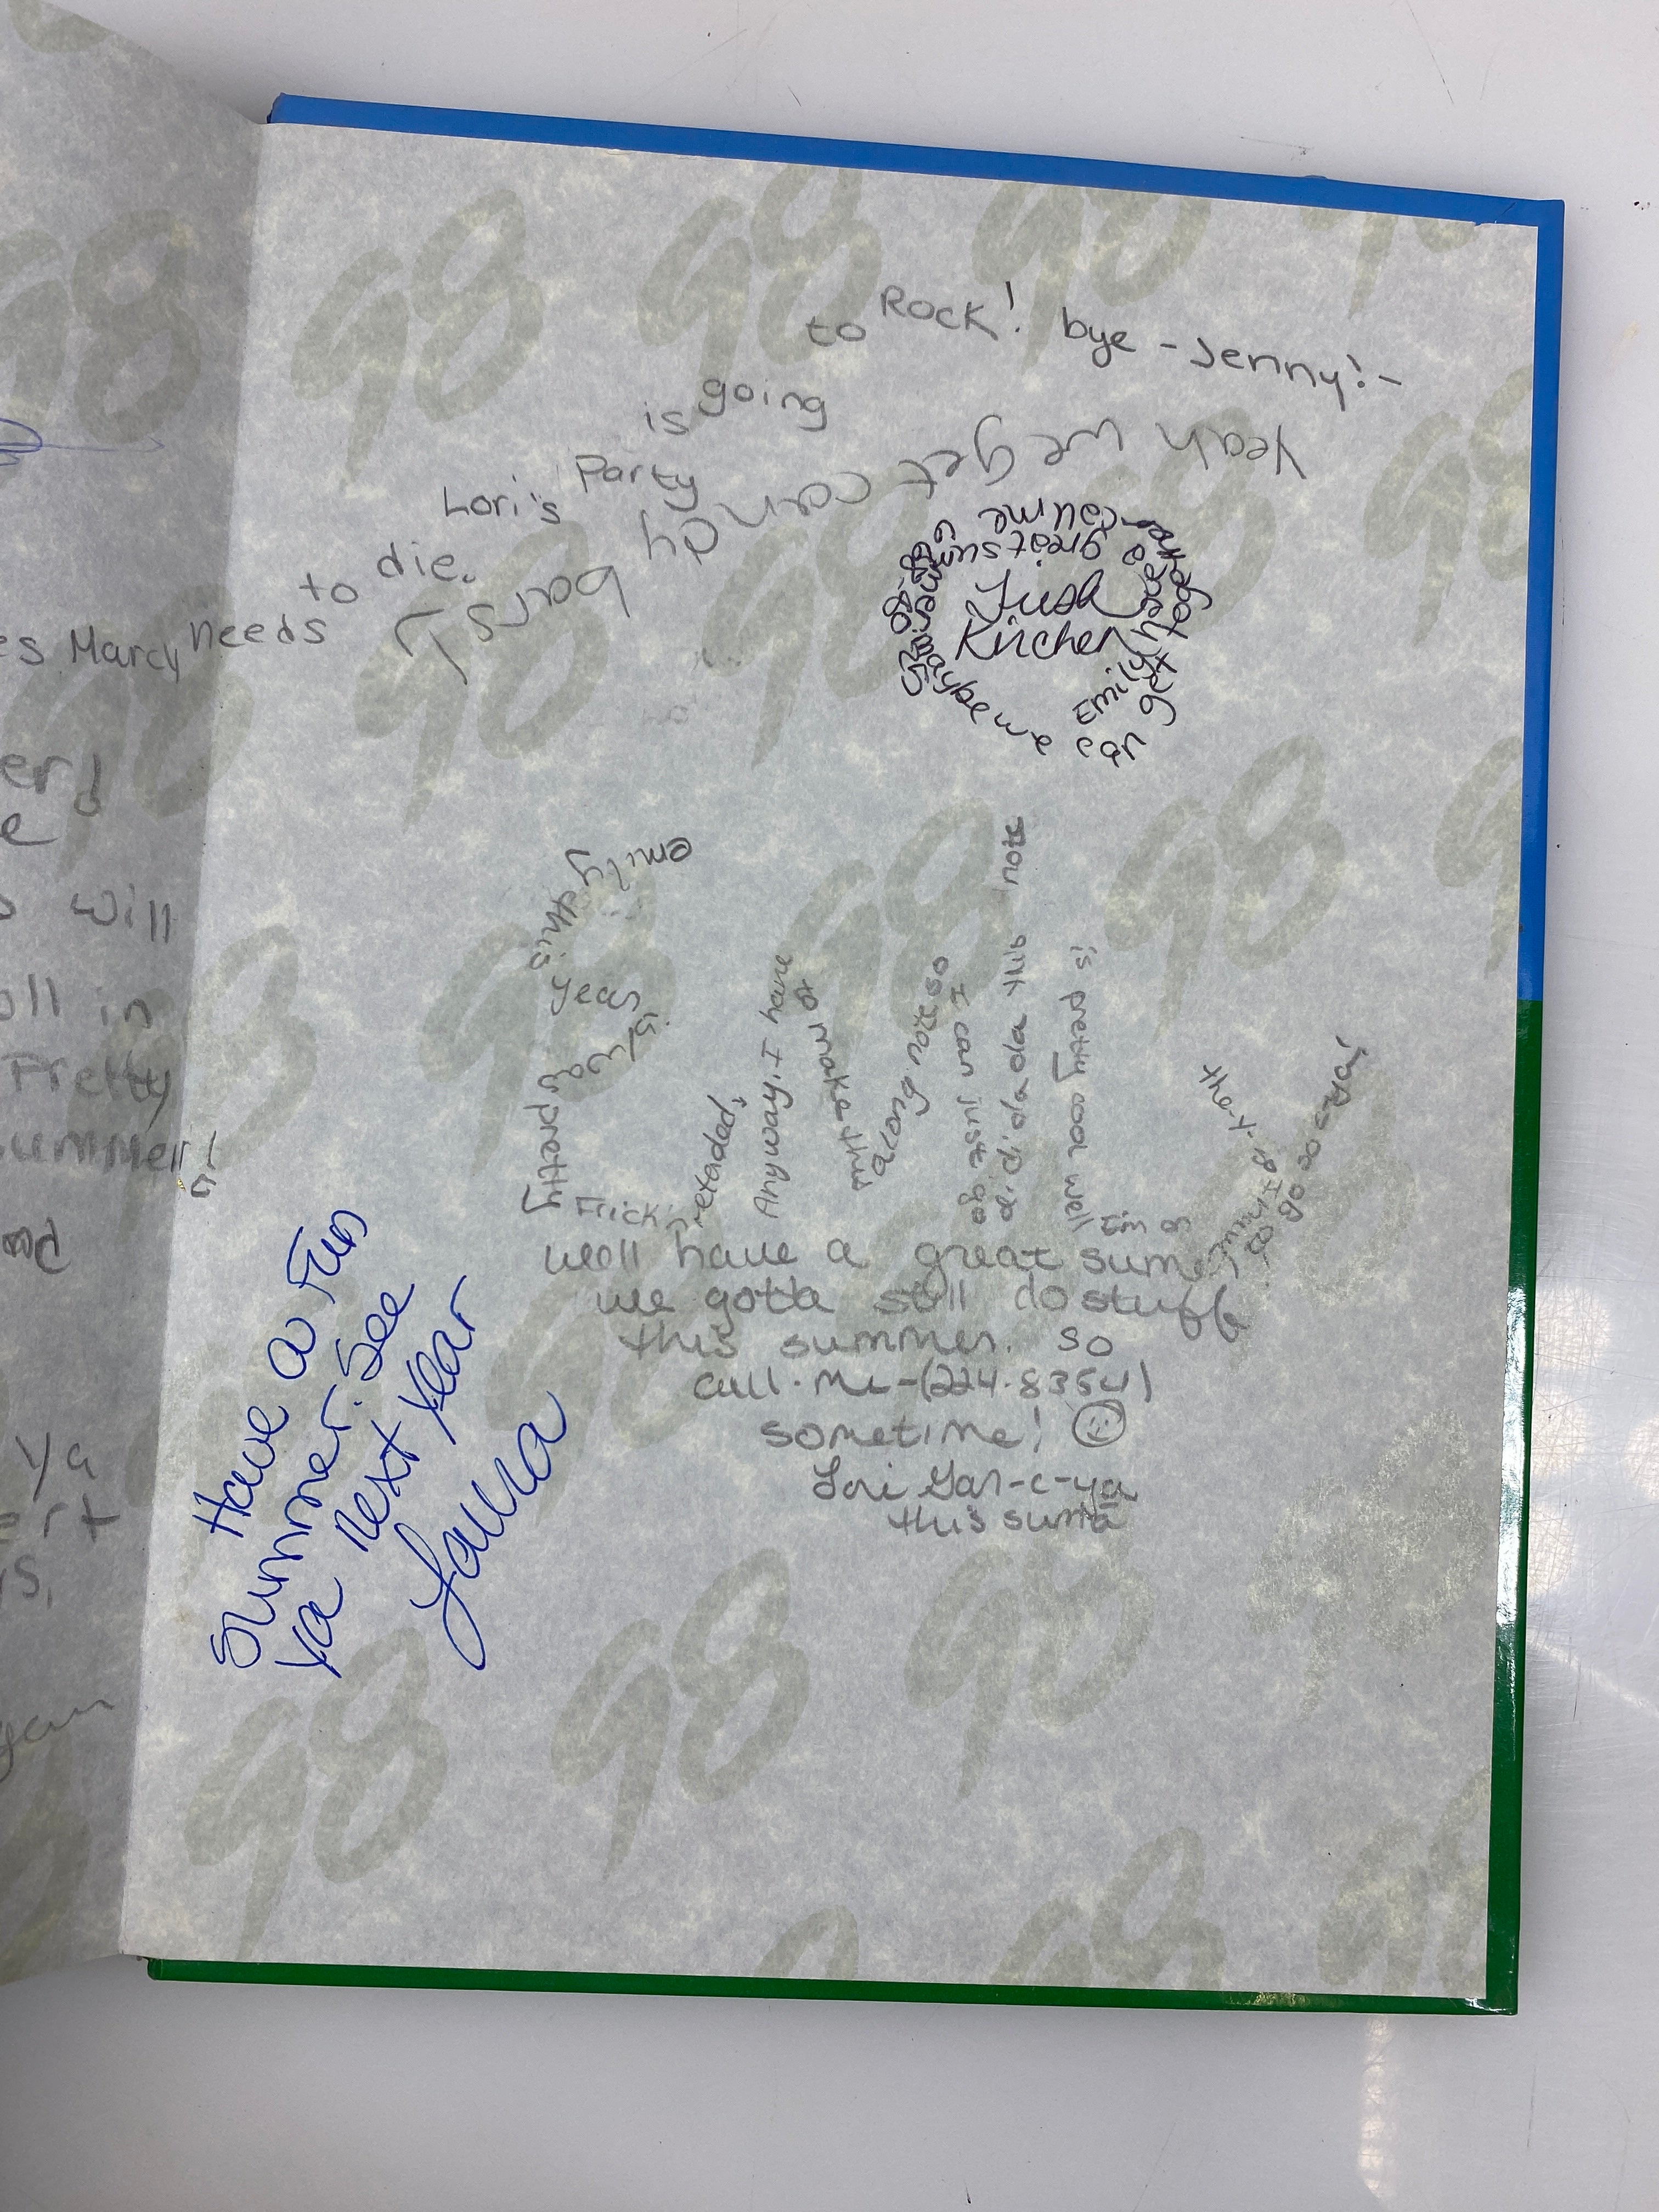 to Rock! bye - Jenny! -
is going
Lori's Party
to die.
es Marcy needs
Yeah we get candy bars!
Emily have a great summe
maybe we can get together
Kirchen
erd
e
will
all in
Pretty
summer!
emily
this year is/was pretty
Frickin retaded!
Anyway, I have
to make this
a long note so
I can just go
di di da da this note
is pretty cool well
I'm on
go so c-ya!
well have a great sume
we gotta still do stuff
this summer. so
call me - (224-8354)
sometime!
Lori Gar-c-ya
this suma
Have a Fun
Summer. See
Ya next year
Laura
ya
ert